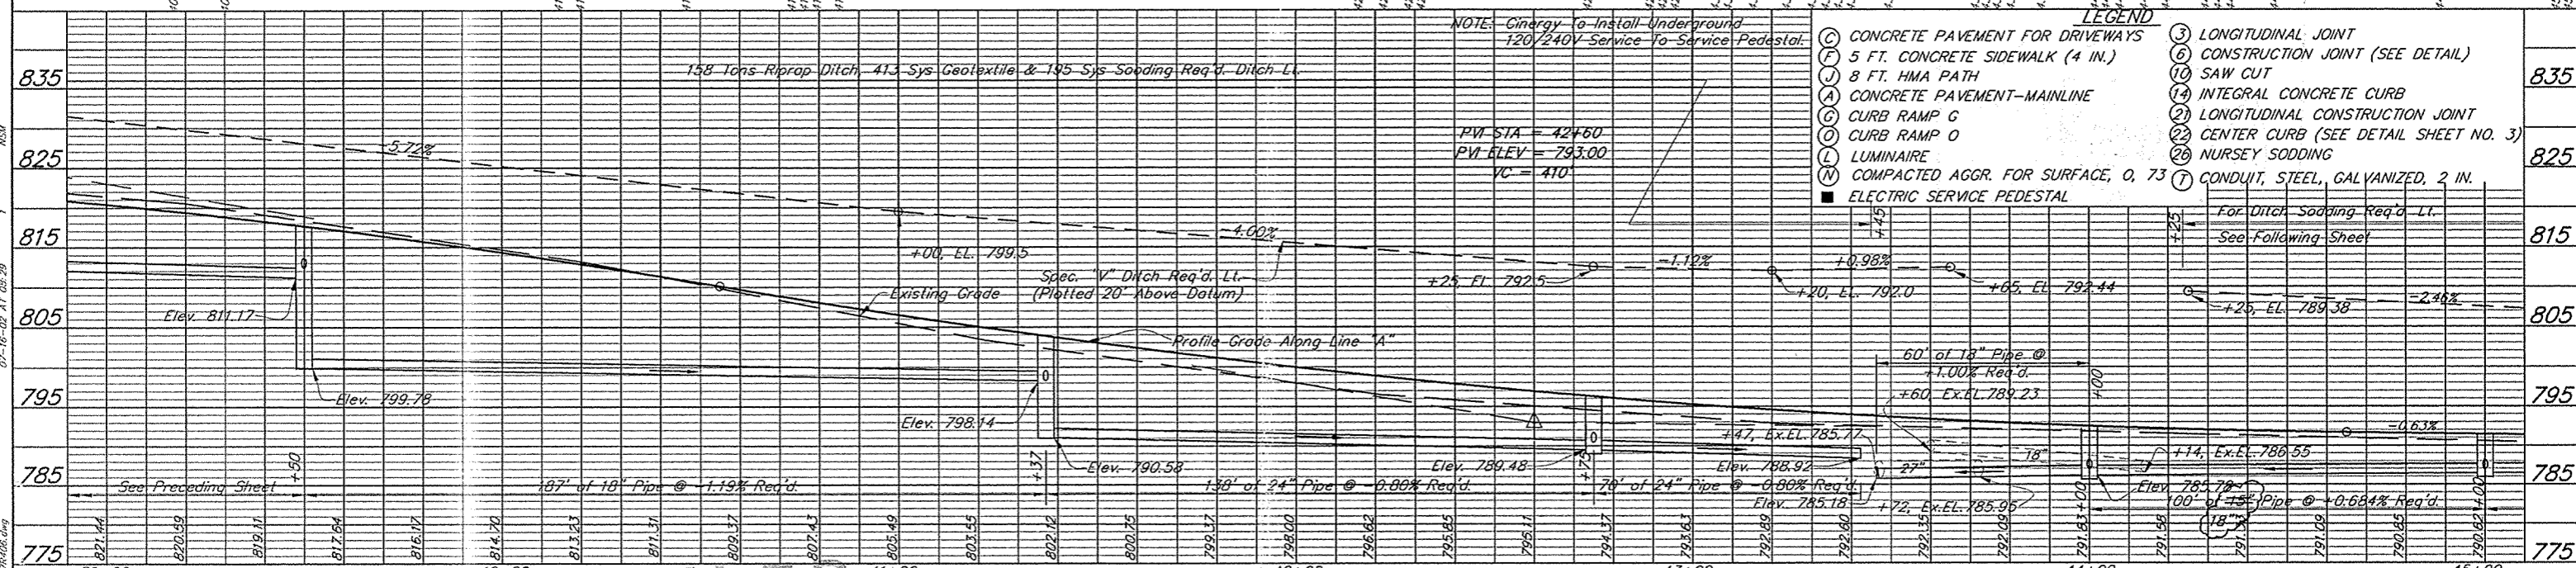 NOTE: Cinergy To Install Underground
120/240V Service To Service Pedestal.
LEGEND
C CONCRETE PAVEMENT FOR DRIVEWAYS
F 5 FT. CONCRETE SIDEWALK (4 IN.)
J 8 FT. HMA PATH
A CONCRETE PAVEMENT-MAINLINE
G CURB RAMP G
O CURB RAMP O
L LUMINAIRE
N COMPACTED AGGR. FOR SURFACE, O, 73
■ ELECTRIC SERVICE PEDESTAL
3 LONGITUDINAL JOINT
6 CONSTRUCTION JOINT (SEE DETAIL)
10 SAW CUT
14 INTEGRAL CONCRETE CURB
21 LONGITUDINAL CONSTRUCTION JOINT
22 CENTER CURB (SEE DETAIL SHEET NO. 3)
26 NURSEY SODDING
T CONDUIT, STEEL, GALVANIZED, 2 IN.
835
825
815
805
795
785
775
835
825
815
805
795
785
775
158 Tons Riprap Ditch, 413 Sys Geotextile & 195 Sys Sodding Req'd. Ditch Lt.
-5.72%
PVI STA = 42+60
PVI ELEV = 793.00
VC = 410'
+45
+25
For Ditch Sodding Req'd Lt.
See Following Sheet
-4.00%
+00, EL. 799.5
Spec. "V" Ditch Req'd. Lt.
(Plotted 20' Above Datum)
+25, El. 792.5
-1.12%
+0.98%
+20, EL. 792.0
+65, EL. 792.44
-2.46%
+25, EL. 789.38
Existing Grade
Elev. 811.17
Profile Grade Along Line "A"
60' of 18" Pipe @
+1.00% Req'd.
+60, Ex.EL.789.23
+00
Elev. 799.78
Elev. 798.14
+47, Ex.EL.785.77
-0.63%
+50
+37
Elev. 790.58
Elev. 789.48
+75
Elev. 788.92
27"
18"
+14, Ex.EL.786.55
See Preceding Sheet
187' of 18" Pipe @ -1.19% Req'd.
138' of 24" Pipe @ -0.80% Req'd.
70' of 24" Pipe @ -0.80% Req'd.
Elev. 785.18
+72, Ex.EL.785.95
Elev. 785.78
100' of 15" Pipe @ +0.684% Req'd.
18"
+00
+00
821.44
820.59
819.11
817.64
816.17
814.70
813.23
811.31
809.37
807.43
805.49
803.55
802.12
800.75
799.37
798.00
796.62
795.85
795.11
794.37
793.63
792.89
792.60
792.35
792.09
791.83
791.58
791.09
790.85
790.62